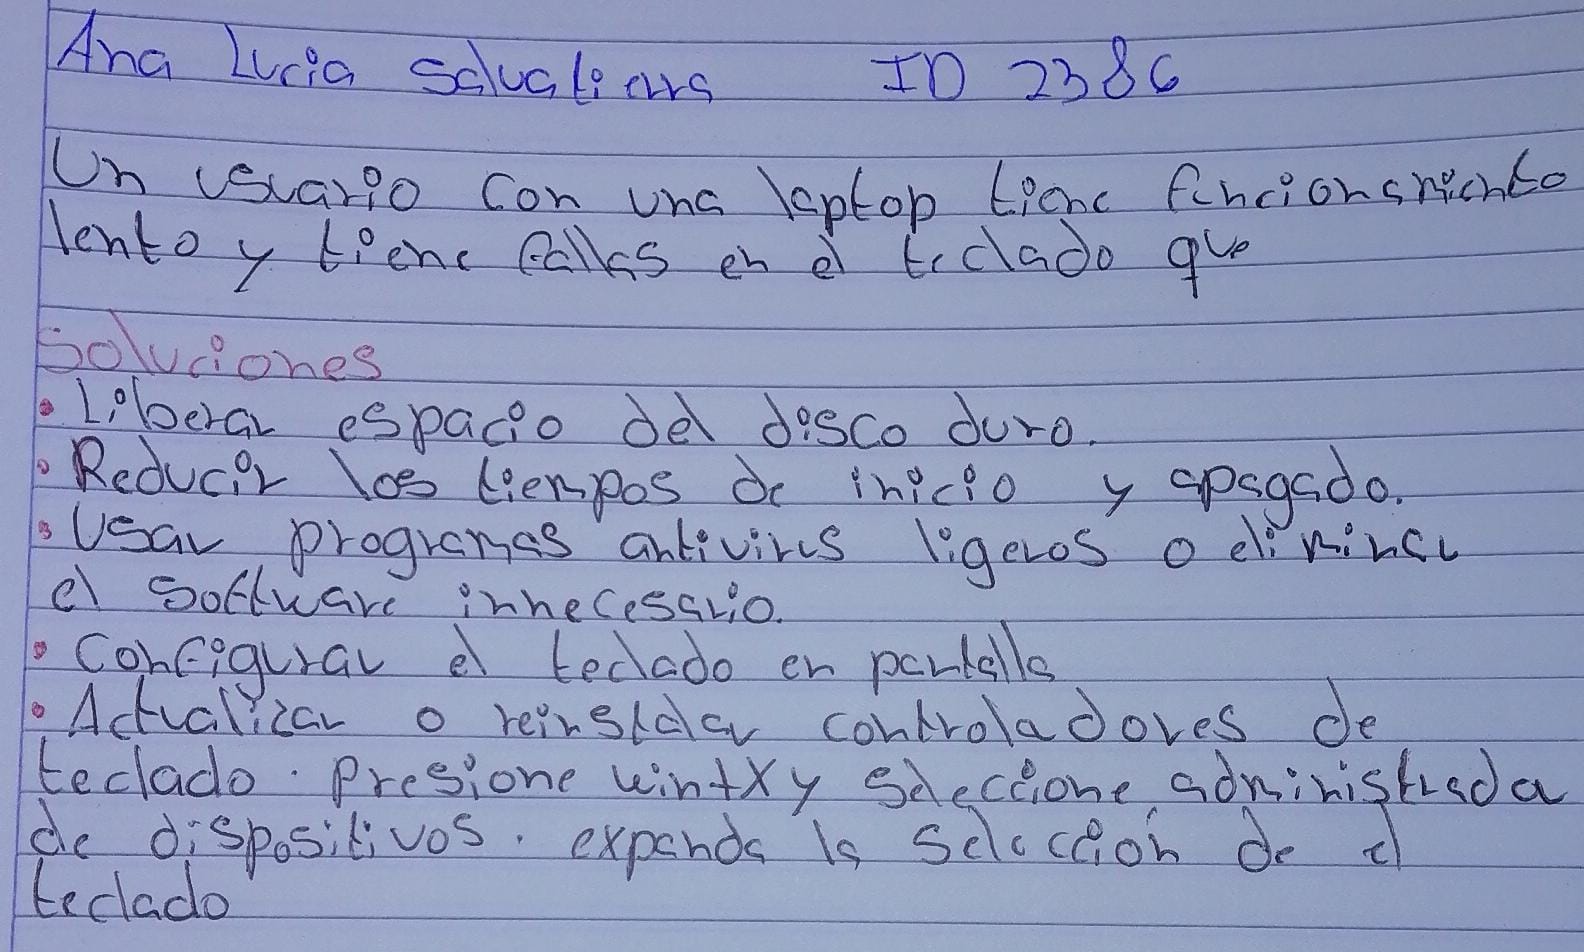 Ana Lucia Salvatierra ID 2386
Un usuario con una laptop tiene funcionamiento
lento y tiene fallas en el teclado que
Soluciones
• Liberar espacio del disco duro.
• Reducir los tiempos de inicio y apagado.
• Usar programas antivirus ligeros o eliminar
el software innecesario.
• Configurar el teclado en pantalla
• Actualizar o reinstalar controladores de
teclado. Presione win+X y seleccione administrada
de dispositivos. expanda la selección de el
teclado